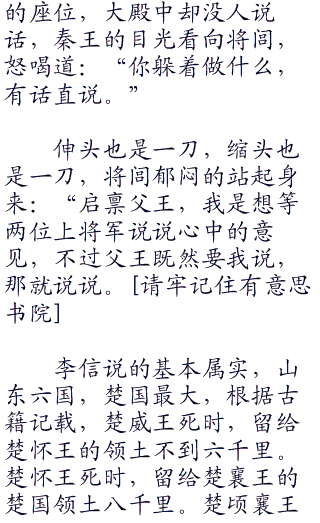 的座位，大殿中却没人说
话，秦王的目光看向将闾，
怒喝道：“你躲着做什么，
有话直说。”
伸头也是一刀，缩头也
是一刀，将闾郁闷的站起身
来：“启禀父王，我是想等
两位上将军说说心中的意
见，不过父王既然要我说，
那就说说。[请牢记住有意思
书院]
李信说的基本属实，山
东六国，楚国最大，根据古
籍记载，楚威王死时，留给
楚怀王的领土不到六千里。
楚怀王死时，留给楚襄王的
楚国领土八千里。楚顷襄王